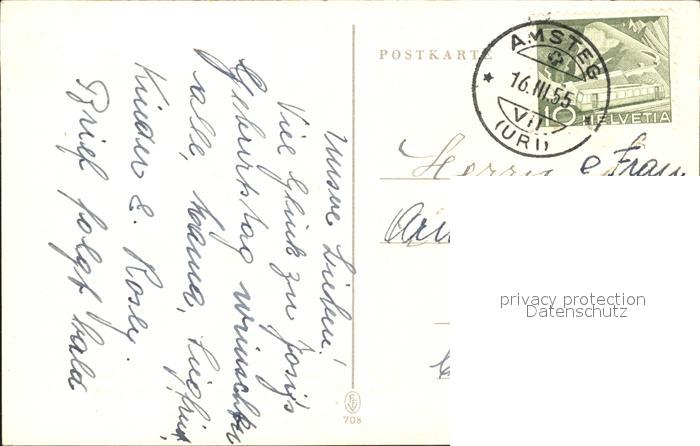 Unsere Lieben!
Viel Glück zu Josy's
Geburtstag wünschen
alle, Mama,
Kinder & Rosly.
Brief folgt bald
POSTKARTE
AMSTEG
16.III.55
VII
(URI)
10 HELVETIA
Herrn & Frau
privacy protection
Datenschutz
708